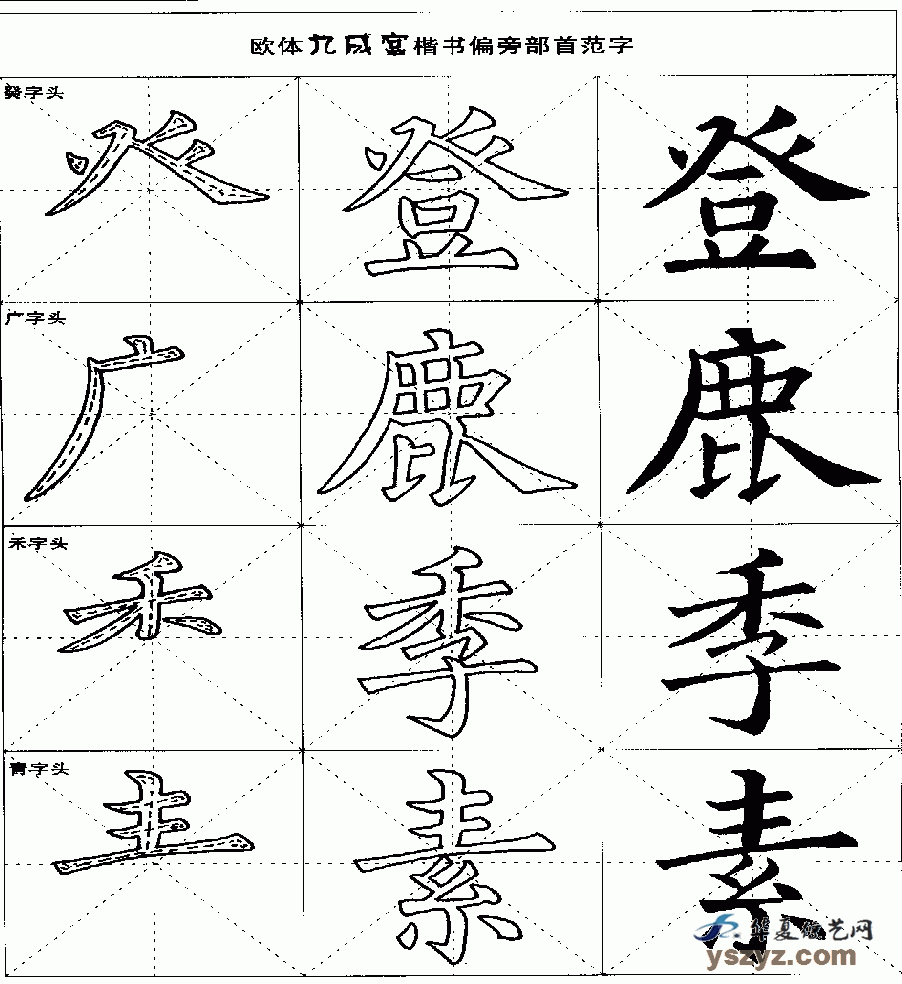 欧体九成宫楷书偏旁部首范字
癸字头
癶 登 登
广字头
广 鹿 鹿
禾字头
禾 季 季
青字头
龶 素 素
华夏微艺网
yszyz.com